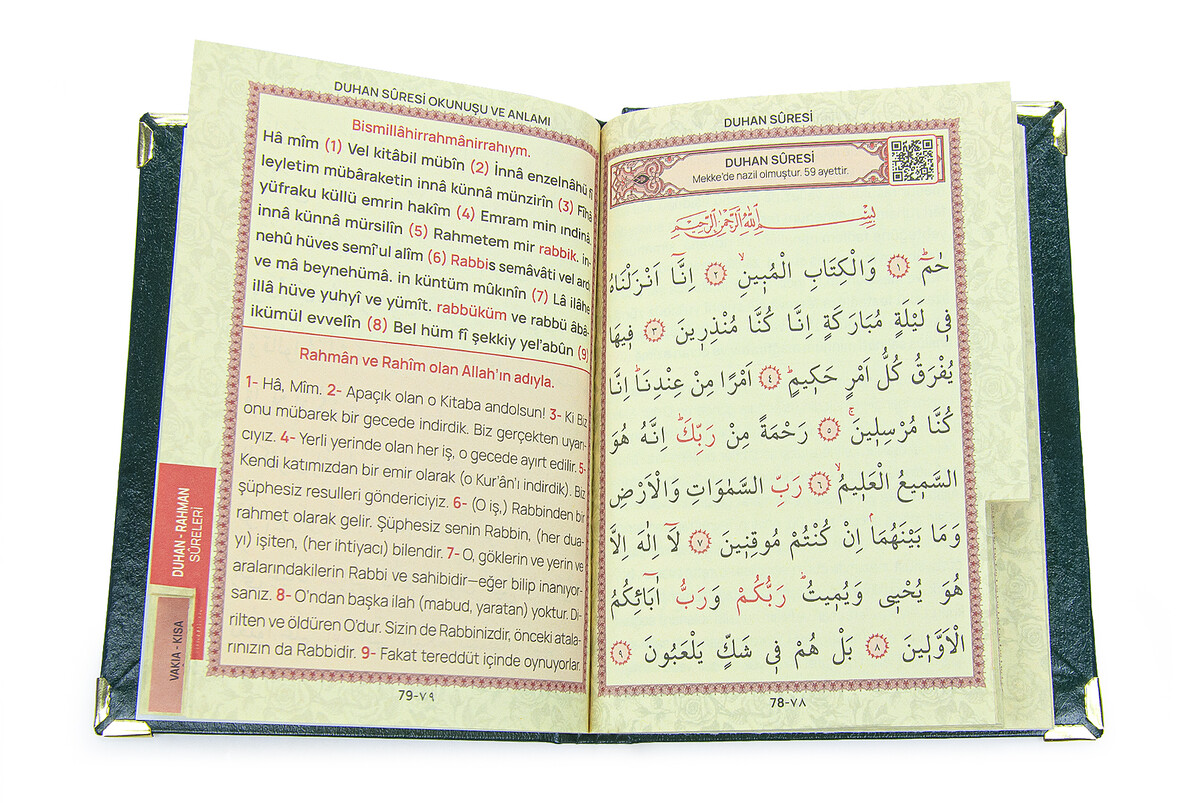 DUHAN SÛRESİ
DUHAN SÛRESİ
Mekke'de nazil olmuştur. 59 ayettir.
بِسْمِ اللّٰهِ الرَّحْمٰنِ الرَّحٖيمِ
حٰمٓ ۚ ﴿١﴾ وَالْكِتَابِ الْمُبٖينِ ۙ ﴿٢﴾ اِنَّٓا اَنْزَلْنَاهُ
فٖي لَيْلَةٍ مُبَارَكَةٍ اِنَّا كُنَّا مُنْذِرٖينَ ﴿٣﴾ فٖيهَا
يُفْرَقُ كُلُّ اَمْرٍ حَكٖيمٍ ۙ ﴿٤﴾ اَمْرًا مِنْ عِنْدِنَا ۜ اِنَّا
كُنَّا مُرْسِلٖينَ ۚ ﴿٥﴾ رَحْمَةً مِنْ رَبِّكَ ۜ اِنَّهُ هُوَ
السَّمٖيعُ الْعَلٖيمُ ۙ ﴿٦﴾ رَبِّ السَّمٰوَاتِ وَالْاَرْضِ
وَمَا بَيْنَهُمَا ۢ اِنْ كُنْتُمْ مُوقِنٖينَ ﴿٧﴾ لَٓا اِلٰهَ اِلَّا
هُوَ يُحْيٖي وَيُمٖيتُ ۜ رَبُّكُمْ وَرَبُّ اٰبَٓائِكُمُ
الْاَوَّلٖينَ ﴿٨﴾ بَلْ هُمْ فٖي شَكٍّ يَلْعَبُونَ ﴿٩﴾
78-٧٨
DUHAN SÛRESİ OKUNUŞU VE ANLAMI
Bismillâhirrahmânirrahıym.
Hâ mîm (1) Vel kitâbil mübîn (2) İnnâ enzelnâhü fî
leyletim mübâraketin innâ künnâ münzirîn (3) Fîhâ
yüfraku küllü emrin hakîm (4) Emram min ındinâ,
innâ künnâ mürsilîn (5) Rahmetem mir rabbik. in-
nehû hüves semî'ul alîm (6) Rabbis semâvâti vel ard
ve mâ beynehümâ. in küntüm mûkınîn (7) Lâ ilâhe
illâ hüve yuhyî ve yümît. rabbüküm ve rabbü âbâ-
ikümül evvelîn (8) Bel hüm fî şekkiy yel'abûn (9)
Rahmân ve Rahîm olan Allah'ın adıyla.
1- Hâ, Mîm. 2- Apaçık olan o Kitaba andolsun! 3- Ki Biz
onu mübarek bir gecede indirdik. Biz gerçekten uyarı-
cıyız. 4- Yerli yerinde olan her iş, o gecede ayırt edilir. 5-
Kendi katımızdan bir emir olarak (o Kur'ân'ı indirdik). Biz
şüphesiz resulleri göndericiyiz. 6- (O iş,) Rabbinden bir
rahmet olarak gelir. Şüphesiz senin Rabbin, (her dua-
yı) işiten, (her ihtiyacı) bilendir. 7- O, göklerin ve yerin ve
aralarındakilerin Rabbi ve sahibidir—eğer bilip inanıyor-
sanız. 8- O'ndan başka ilah (mabud, yaratan) yoktur. Di-
rilten ve öldüren O'dur. Sizin de Rabbinizdir, önceki atala-
rınızın da Rabbidir. 9- Fakat tereddüt içinde oynuyorlar.
79-٧٩
DUHAN - RAHMAN
SÛRELERİ
VAKIA - KISA